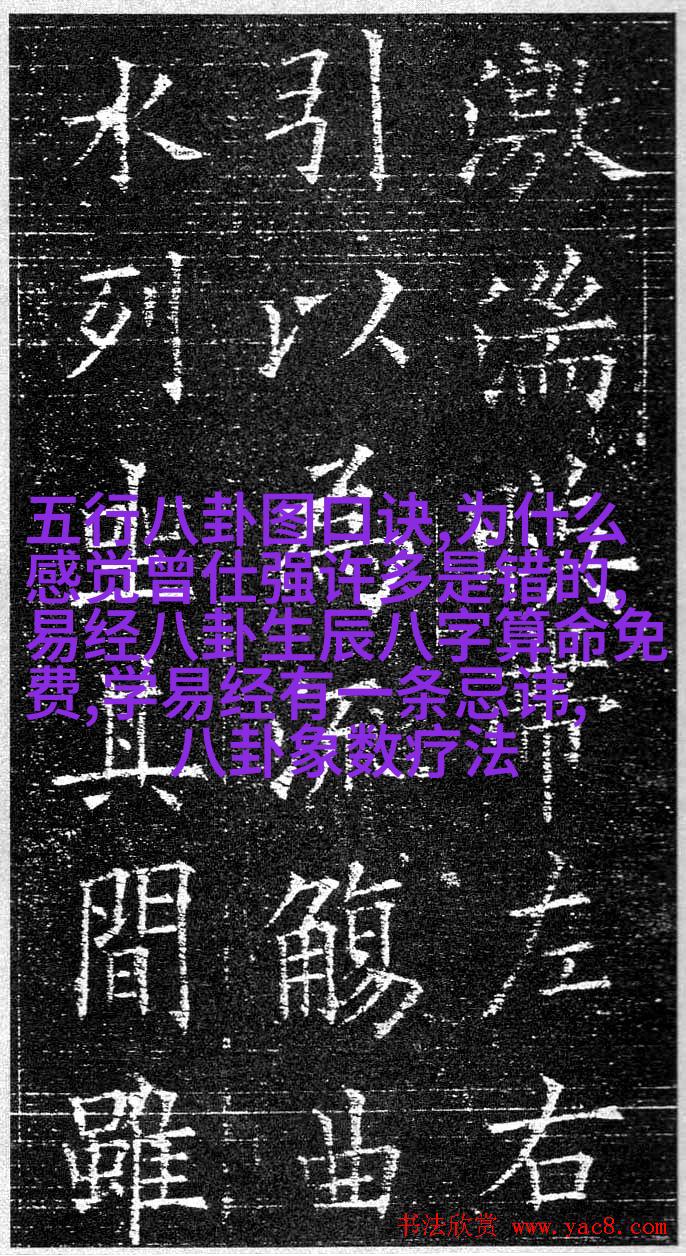 激湍映帶左右
引以為流觴曲
水列坐其間雖
五行八卦图口诀,为什么
感觉曾仕强许多是错的,
易经八卦生辰八字算命免
费,学易经有一条忌讳,
八卦象数疗法
书法欣赏 www.yac8.com